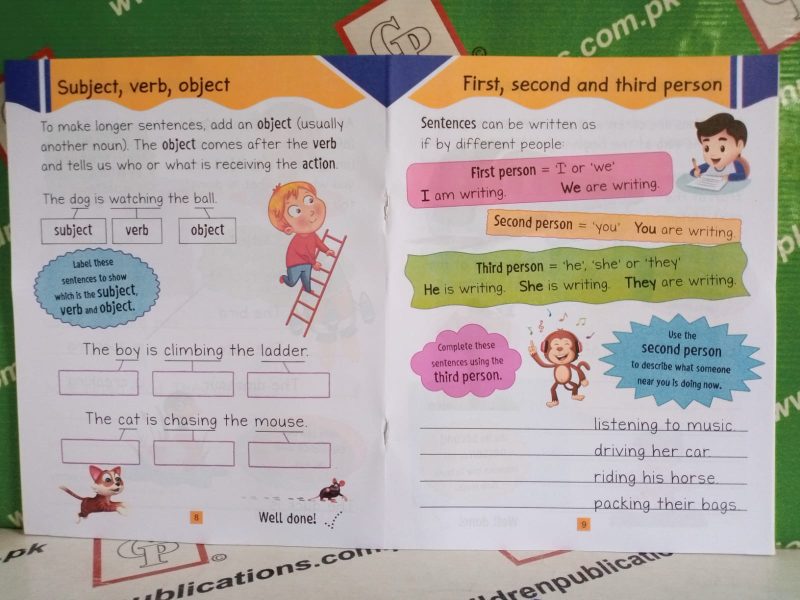 Subject, verb, object
To make longer sentences, add an object (usually
another noun). The object comes after the verb
and tells us who or what is receiving the action.
The dog is watching the ball.
subject verb object
Label these
sentences to show
which is the subject,
verb and object.
The boy is climbing the ladder.
The cat is chasing the mouse.
8
Well done!
First, second and third person
Sentences can be written as
if by different people:
First person = 'I' or 'we'
I am writing. We are writing.
Second person = 'you' You are writing.
Third person = 'he', 'she' or 'they'
He is writing. She is writing. They are writing.
Complete these
sentences using the
third person.
Use the
second person
to describe what someone
near you is doing now.
listening to music
driving her car.
riding his horse.
packing their bags.
9
GP
©
GP
©
publications.com